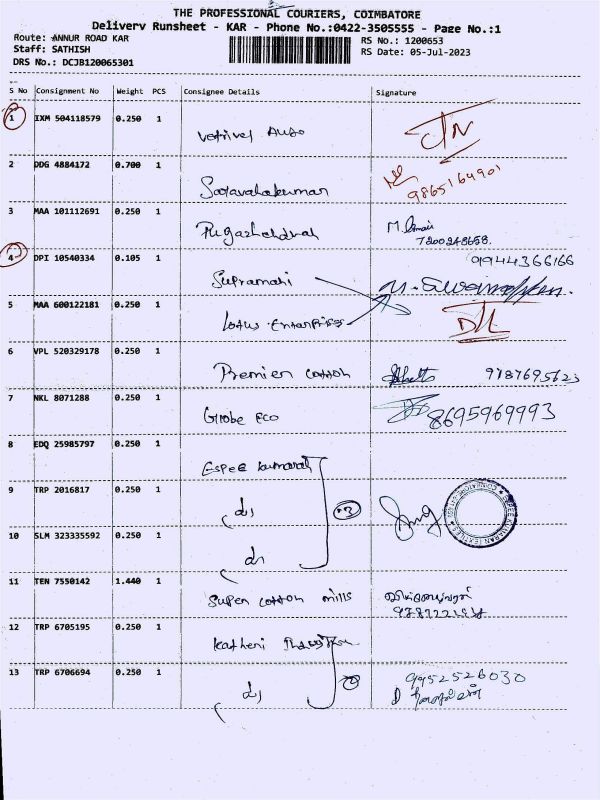 THE PROFESSIONAL COURIERS, COIMBATORE
Delivery Runsheet - KAR - Phone No.:0422-3505555 - Page No.:1
Route: ANNUR ROAD KAR
RS No.: 1200653
Staff: SATHISH
RS Date: 05-Jul-2023
DRS No.: DCJB120065301
S No Consignment No Weight PCS Consignee Details Signature
1 IXM 504118579 0.250 1
Vetrivel Auto
2 DDG 4884172 0.700 1
9865164901
3 MAA 101112691 0.250 1
7200248658.
4 DPI 10540334 0.105 1
9944366166
Supramani
5 MAA 600122181 0.250 1
Lotus Enterprises
6 VPL 520329178 0.250 1
Premier cotton 9787695623
7 NKL 8071288 0.250 1
Globe Eco 8695969993
8 EDQ 25985797 0.250 1
Espee kumaran
9 TRP 2016817 0.250 1
3
10 SLM 323335592 0.250 1
11 TEN 7550142 1.440 1
Super cotton mills
12 TRP 6705195 0.250 1
13 TRP 6706694 0.250 1
9952526030